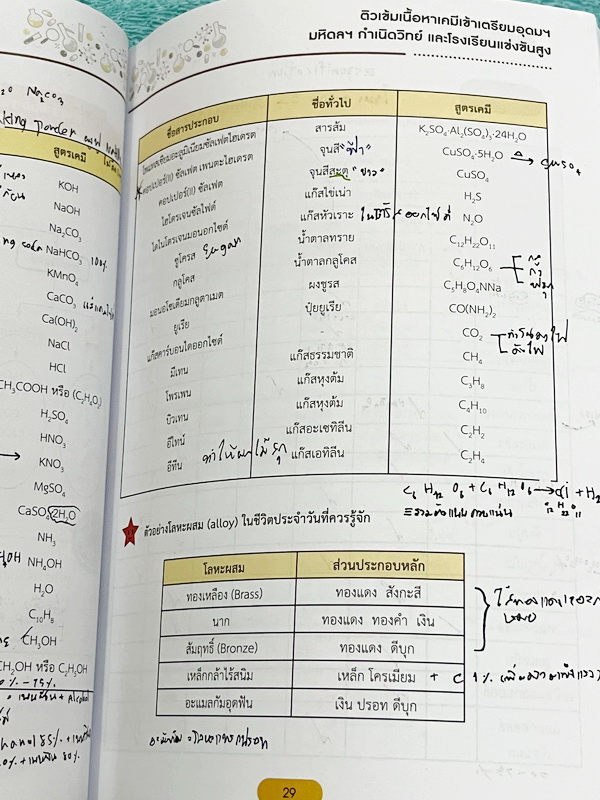 ติวเข้มเนื้อหาเคมีเข้าเตรียมอุดมฯ
มหิดลฯ กำเนิดวิทย์ และโรงเรียนแข่งขันสูง
Na₂CO₃
สูตรเคมี
KOH
NaOH
Na₂CO₃
NaHCO₃ 100%
KMnO₄
CaCO₃
Ca(OH)₂
NaCl
HCl
CH₃COOH หรือ (C₂H₄O₂)
H₂SO₄
HNO₃
KNO₃
MgSO₄
CaSO₄·2H₂O
NH₄OH
H₂O
C₁₀H₈
CH₃OH
CH₂OH หรือ C₂H₅OH
ชื่อสารประกอบ ชื่อทั่วไป สูตรเคมี
โพแทสเซียมอะลูมิเนียมซัลเฟตไฮเดรต สารส้ม K₂SO₄·Al₂(SO₄)₃·24H₂O
คอปเปอร์(II) ซัลเฟต เพนตะไฮเดรต จุนสี "ฟ้า" CuSO₄·5H₂O
คอปเปอร์(II) ซัลเฟต จุนสีสะตุ "ขาว" CuSO₄
ไฮโดรเจนซัลไฟด์ แก๊สไข่เน่า H₂S
ไดไนโตรเจนมอนอกไซด์ แก๊สหัวเราะ N₂O
ซูโครส น้ำตาลทราย C₁₂H₂₂O₁₁
กลูโคส น้ำตาลกลูโคส C₆H₁₂O₆
มอนอโซเดียมกลูตาเมต ผงชูรส C₅H₈O₄NNa
ยูเรีย ปุ๋ยยูเรีย CO(NH₂)₂
แก๊สคาร์บอนไดออกไซด์ - CO₂
มีเทน แก๊สธรรมชาติ CH₄
โพรเพน แก๊สหุงต้ม C₃H₈
บิวเทน แก๊สหุงต้ม C₄H₁₀
อีไทน์ แก๊สอะเซทิลีน C₂H₂
อีทีน ทำให้ผลไม้สุก แก๊สเอทิลีน C₂H₄
C₆H₁₂O₆ + C₆H₁₂O₆ →
ตัวอย่างโลหะผสม (alloy) ในชีวิตประจำวันที่ควรรู้จัก
โลหะผสม ส่วนประกอบหลัก
ทองเหลือง (Brass) ทองแดง สังกะสี
นาก ทองแดง ทองคำ เงิน
สัมฤทธิ์ (Bronze) ทองแดง ดีบุก
เหล็กกล้าไร้สนิม เหล็ก โครเมียม + C 1%
อะมัลกัมอุดฟัน เงิน ปรอท ดีบุก
29